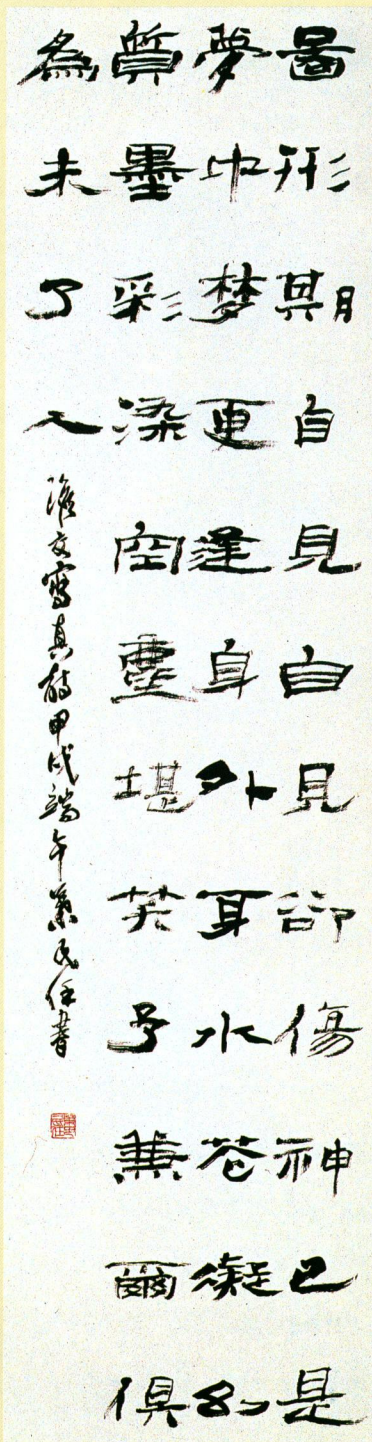 圖形期自見自見卻傷神已是
夢中梦更逢身外身水花凝幻
質墨彩染空塵堪笑予兼爾俱
為未了人
澹交寫真詩甲戌端午葉民任書